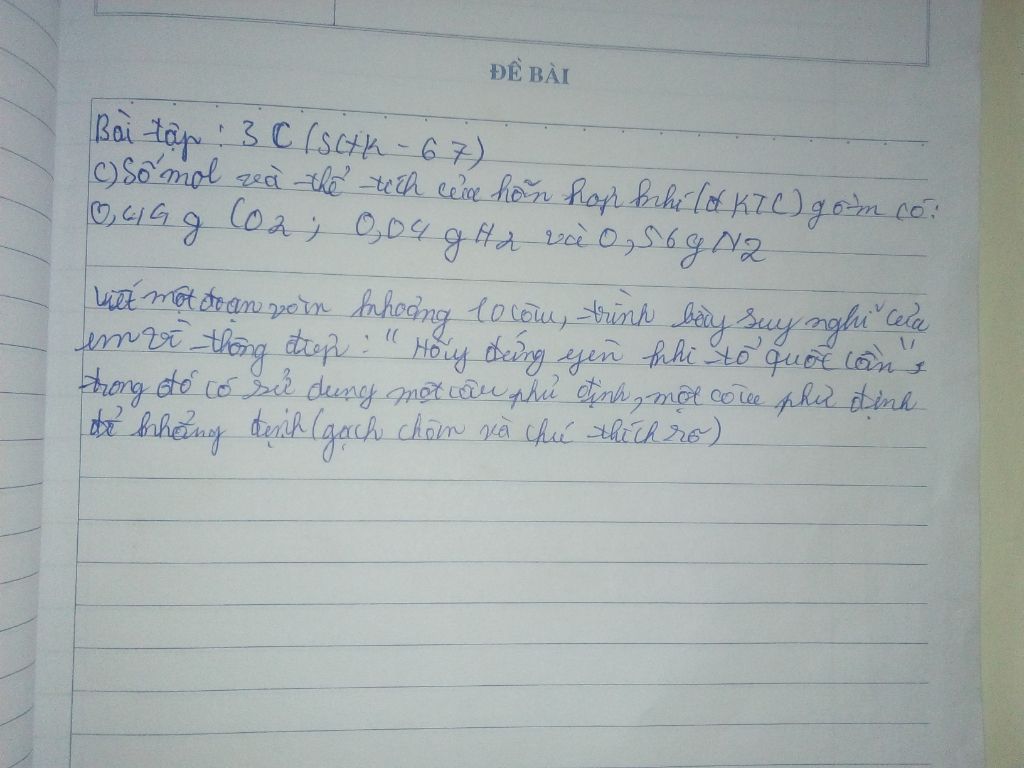 ĐỀ BÀI
Bài tập : 3 C (SGK - 67)
c) Số mol và thể tích của hỗn hợp khí (ở ĐKTC) gồm có:
0,44 g CO2 ; 0,04 g H2 và 0,56 g N2
Viết một đoạn văn khoảng 10 câu, trình bày suy nghĩ của
em về thông điệp : " Hãy đứng yên khi tổ quốc cần",
trong đó có sử dụng một câu phủ định, một câu phủ định
để khẳng định (gạch chân và chú thích rõ)